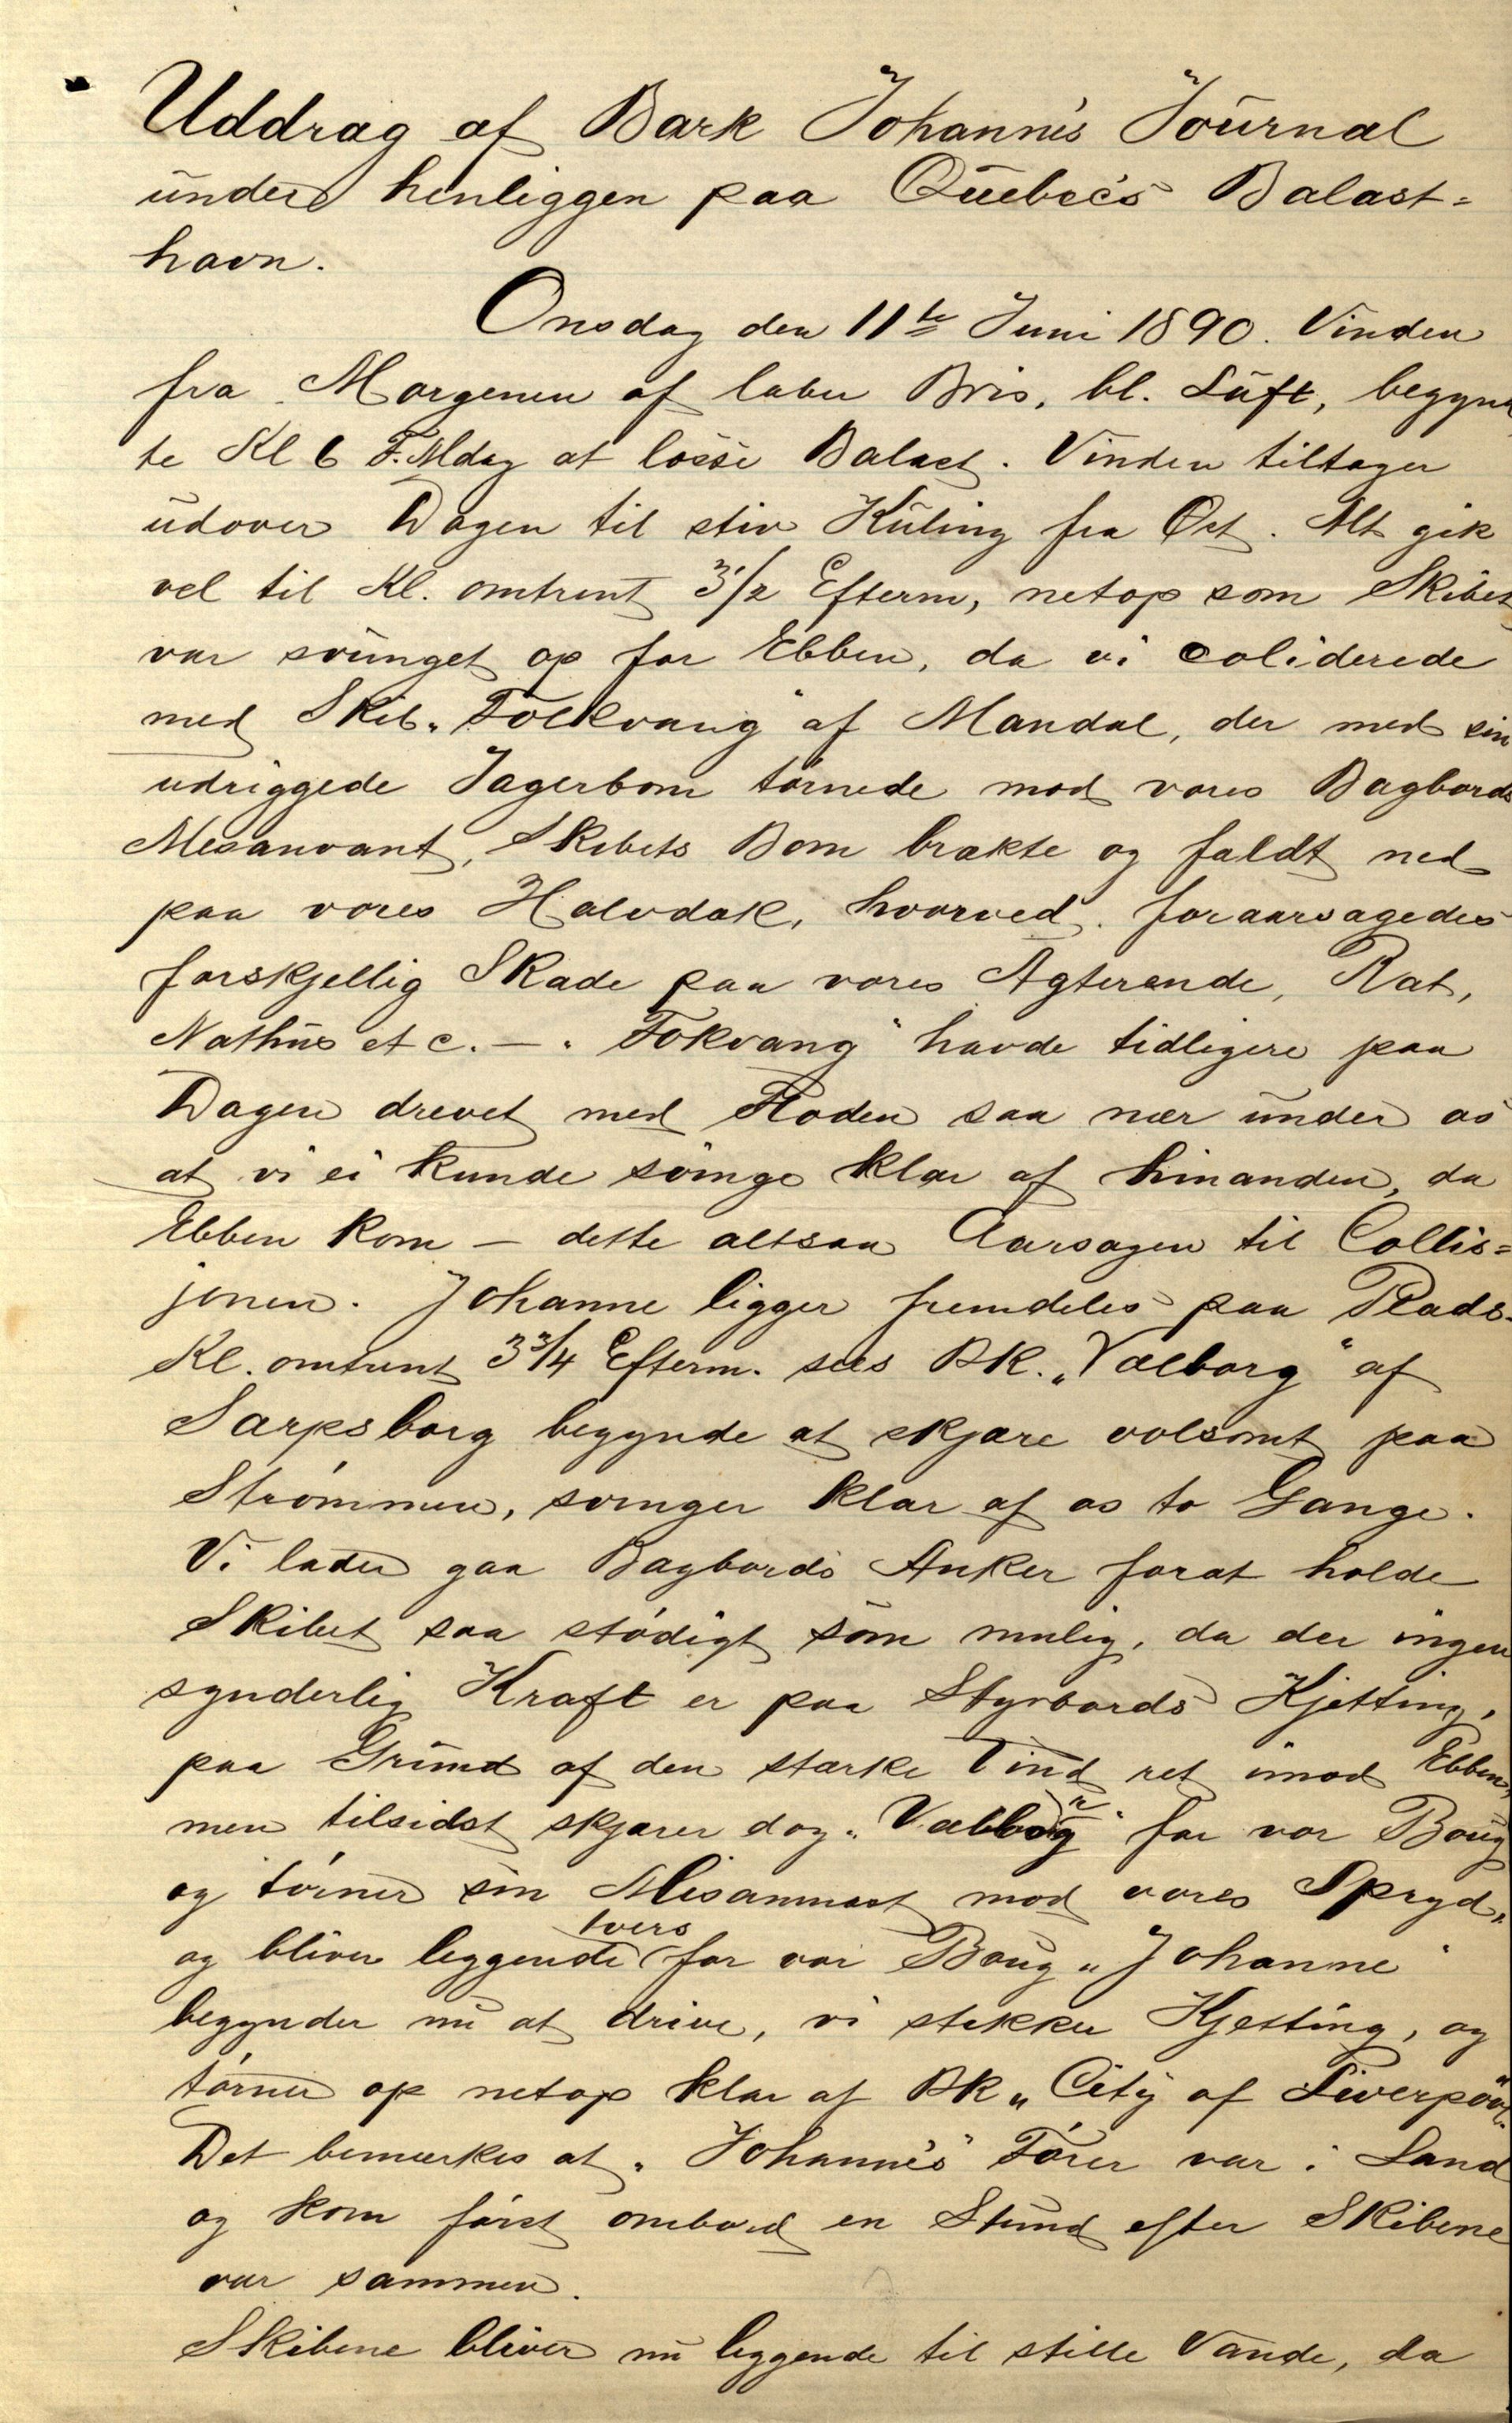 Uddrag af Bark Johanne's Journal
under henliggen paa Quebec's Balast=
havn.
Onsdag den 11te Juni 1890. Vinden
fra Morgenen af laber Bris, bl. Luft, begyn
te Kl 6 F. Mdag at losse Balast. Vinden tiltager
udover Dagen til stiv Kuling fra Øst. Alt gik
vel til Kl. omtrent 3 1/2 Efterm, netop som Skibet
var svinget op for Ebben, da vi coliderede
med Skib „Folkvang" af Mandal, der med sin
udriggede Jagerbom tørnede mod vores Bagbords
Mesanvant, Skibets Bom brakte og faldt ned
paa vores Halvdæk, hvorved foraarsagedes
forskjellig Skade paa vores Agterende, Rat,
Nathus et c. — „Fokvang" havde tidligere paa
Dagen drevet med Floden saa nær under os
at vi ei kunde svinge klar af hinanden, da
Ebben kom — dette altsaa Aarsagen til Collis=
jonen. Johanne ligger fremdeles paa Plads.
Kl. omtrent 3 3/4 Efterm. sees BK. „Valborg" af
Sarpsborg begynde at skjære volsomt paa
Strømmen, svinger klar af os to Gange.
Vi lader gaa Bagbords Anker forat holde
Skibet saa stødigt som mulig, da der ingen
synderlig Kraft er paa Styrbords Kjetting,
paa Grund af den stærke Vind ret imod Ebben,
men tilsidst skjærer dog „Valborg" for vor Boug
og tørner sin Misanmast mod vores Spryd,
og bliver leggende tvers for vor Boug „Johanne"
begynder nu at drive, vi stikker Kjetting, og
tørner op netop klar af BK „City of Liverpool".
Det bemærkes at „Johanne's" Fører var i Land
og kom først ombord en Stund efter Skibene
var sammen.
Skibene bliver nu leggende til stille Vande, da